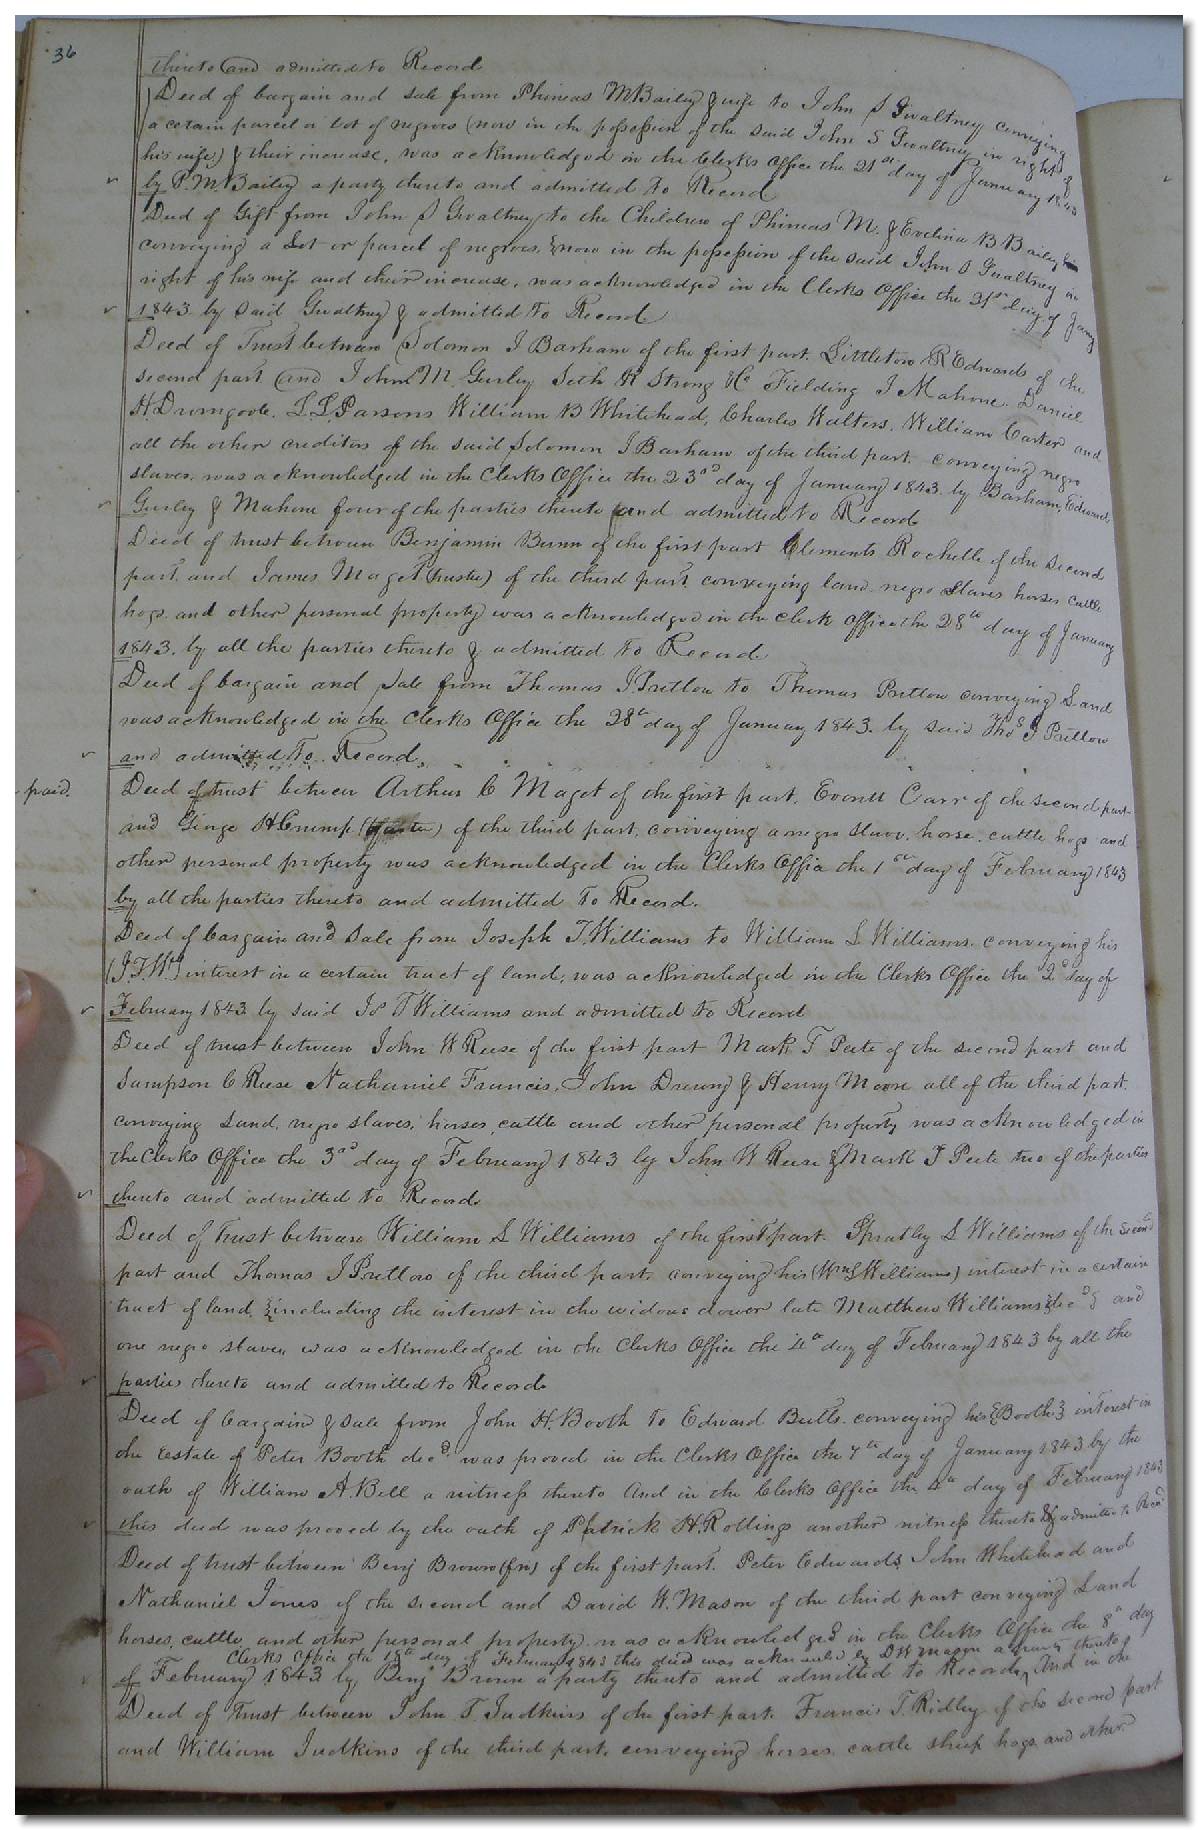 36
thereto and admitted to Record
Deed of bargain and sale from Phineas M Bailey & wife to John S Gwaltney conveying
a certain parcel or lot of negroes (now in the possession of the said John S Gwaltney in right of
his wife) & their increase, was acknowledged in the Clerks Office the 21st day of January 1843
by P. M Bailey a party thereto and admitted to Record
Deed of Gift from John S Gwaltney to the Children of Phineas M. & Evelina B Bailey
conveying a Lot or parcel of negroes, now in the possession of the said John S Gwaltney in
right of his wife and their increase, was acknowledged in the Clerks Office the 21st day of Jany
1843 by said Gwaltney & admitted to Record
Deed of Trust between Solomon J Barham of the first part. Littleton R Edwards of the
second part and John M Gurley Seth H Strong Fielding J Mahone. Daniel
H Dromgoole. L L Parsons William B Whitehead, Charles Walters, William Carter and
all the other creditors of the said Solomon J Barham of the third part. conveying negro
slaves. was acknowledged in the Clerks Office the 23rd day of January 1843. by Barham, Edwards
Gurley & Mahone four of the parties thereto and admitted to Record
Deed of trust between Benjamin Bunn of the first part Clements Rochelle of the second
part, and James Maget (trustee) of the third part conveying land, negro slaves horses cattle
hogs and other personal property was acknowledged in the clerk office the 28th day of January
1843. by all the parties thereto & admitted to Record
Deed of bargain and Sale from Thomas J Pretlow to Thomas Pretlow conveying Land
was acknowledged in the Clerks Office the 28th day of January 1843. by said Thos J Pretlow
and admitted to Record.
paid.
Deed of trust between Arthur C Maget of the first part, Everett Carr of the second part
and George H Crump of the third part, conveying a negro slave, horse, cattle hogs and
other personal property was acknowledged in the Clerks Office the 1st day of February 1843
by all the parties thereto and admitted to Record.
Deed of bargain and Sale from Joseph T. Williams to William S Williams. conveying his
(J. T. W) interest in a certain tract of land, was acknowledged in the Clerks Office the 2d day of
February 1843 by said Js T Williams and admitted to Record
Deed of trust between John W Reese of the first part Mark T Peete of the second part and
Sampson C Reese Nathaniel Francis, John Drewry & Henry Moore all of the third part.
conveying Land, negro slaves, horses, cattle and other personal property was acknowledged in
the Clerks Office the 3rd day of February 1843 by John W Reese & Mark T Peete two of the parties
thereto and admitted to Record
Deed of trust between William S Williams of the first part. Spratley S Williams of the second
part and Thomas J Pretlow of the third part, conveying his (Wm S Williams) interest in a certain
tract of land including the interest in the widows dower late Matthew Williams decd and
one negro slave was acknowledged in the Clerks Office the 4th day of February 1843 by all the
parties thereto and admitted to Record
Deed of bargain & Sale from John H. Booth to Edward Butts. conveying his {Booth} interest in
the Estate of Peter Booth decd. was proved in the Clerks Office the 7th day of January 1843 by the
oath of William A. Bell a witness thereto And in the Clerks Office the 4th day of February 1843
this deed was proved by the oath of Patrick H. Rollings another witness thereto & admitted to Recd
Deed of trust between Benj Brown (fn) of the first part. Peter Edwards, John Whitehead and
Nathaniel Jones of the second and David W. Mason of the third part conveying Land
horses, cattle, and other personal property was acknowledged in the Clerks Office the 8th day
Clerks Office the 18th day of February 1843 this deed was acknowledged by D W Mason a party thereto
of February 1843 by Benj Brown a party thereto and admitted to Record, And in the
Deed of Trust between John T. Judkins of the first part. Francis T. Ridley of the second part
and William Judkins of the third part. conveying horses cattle sheep hogs and other